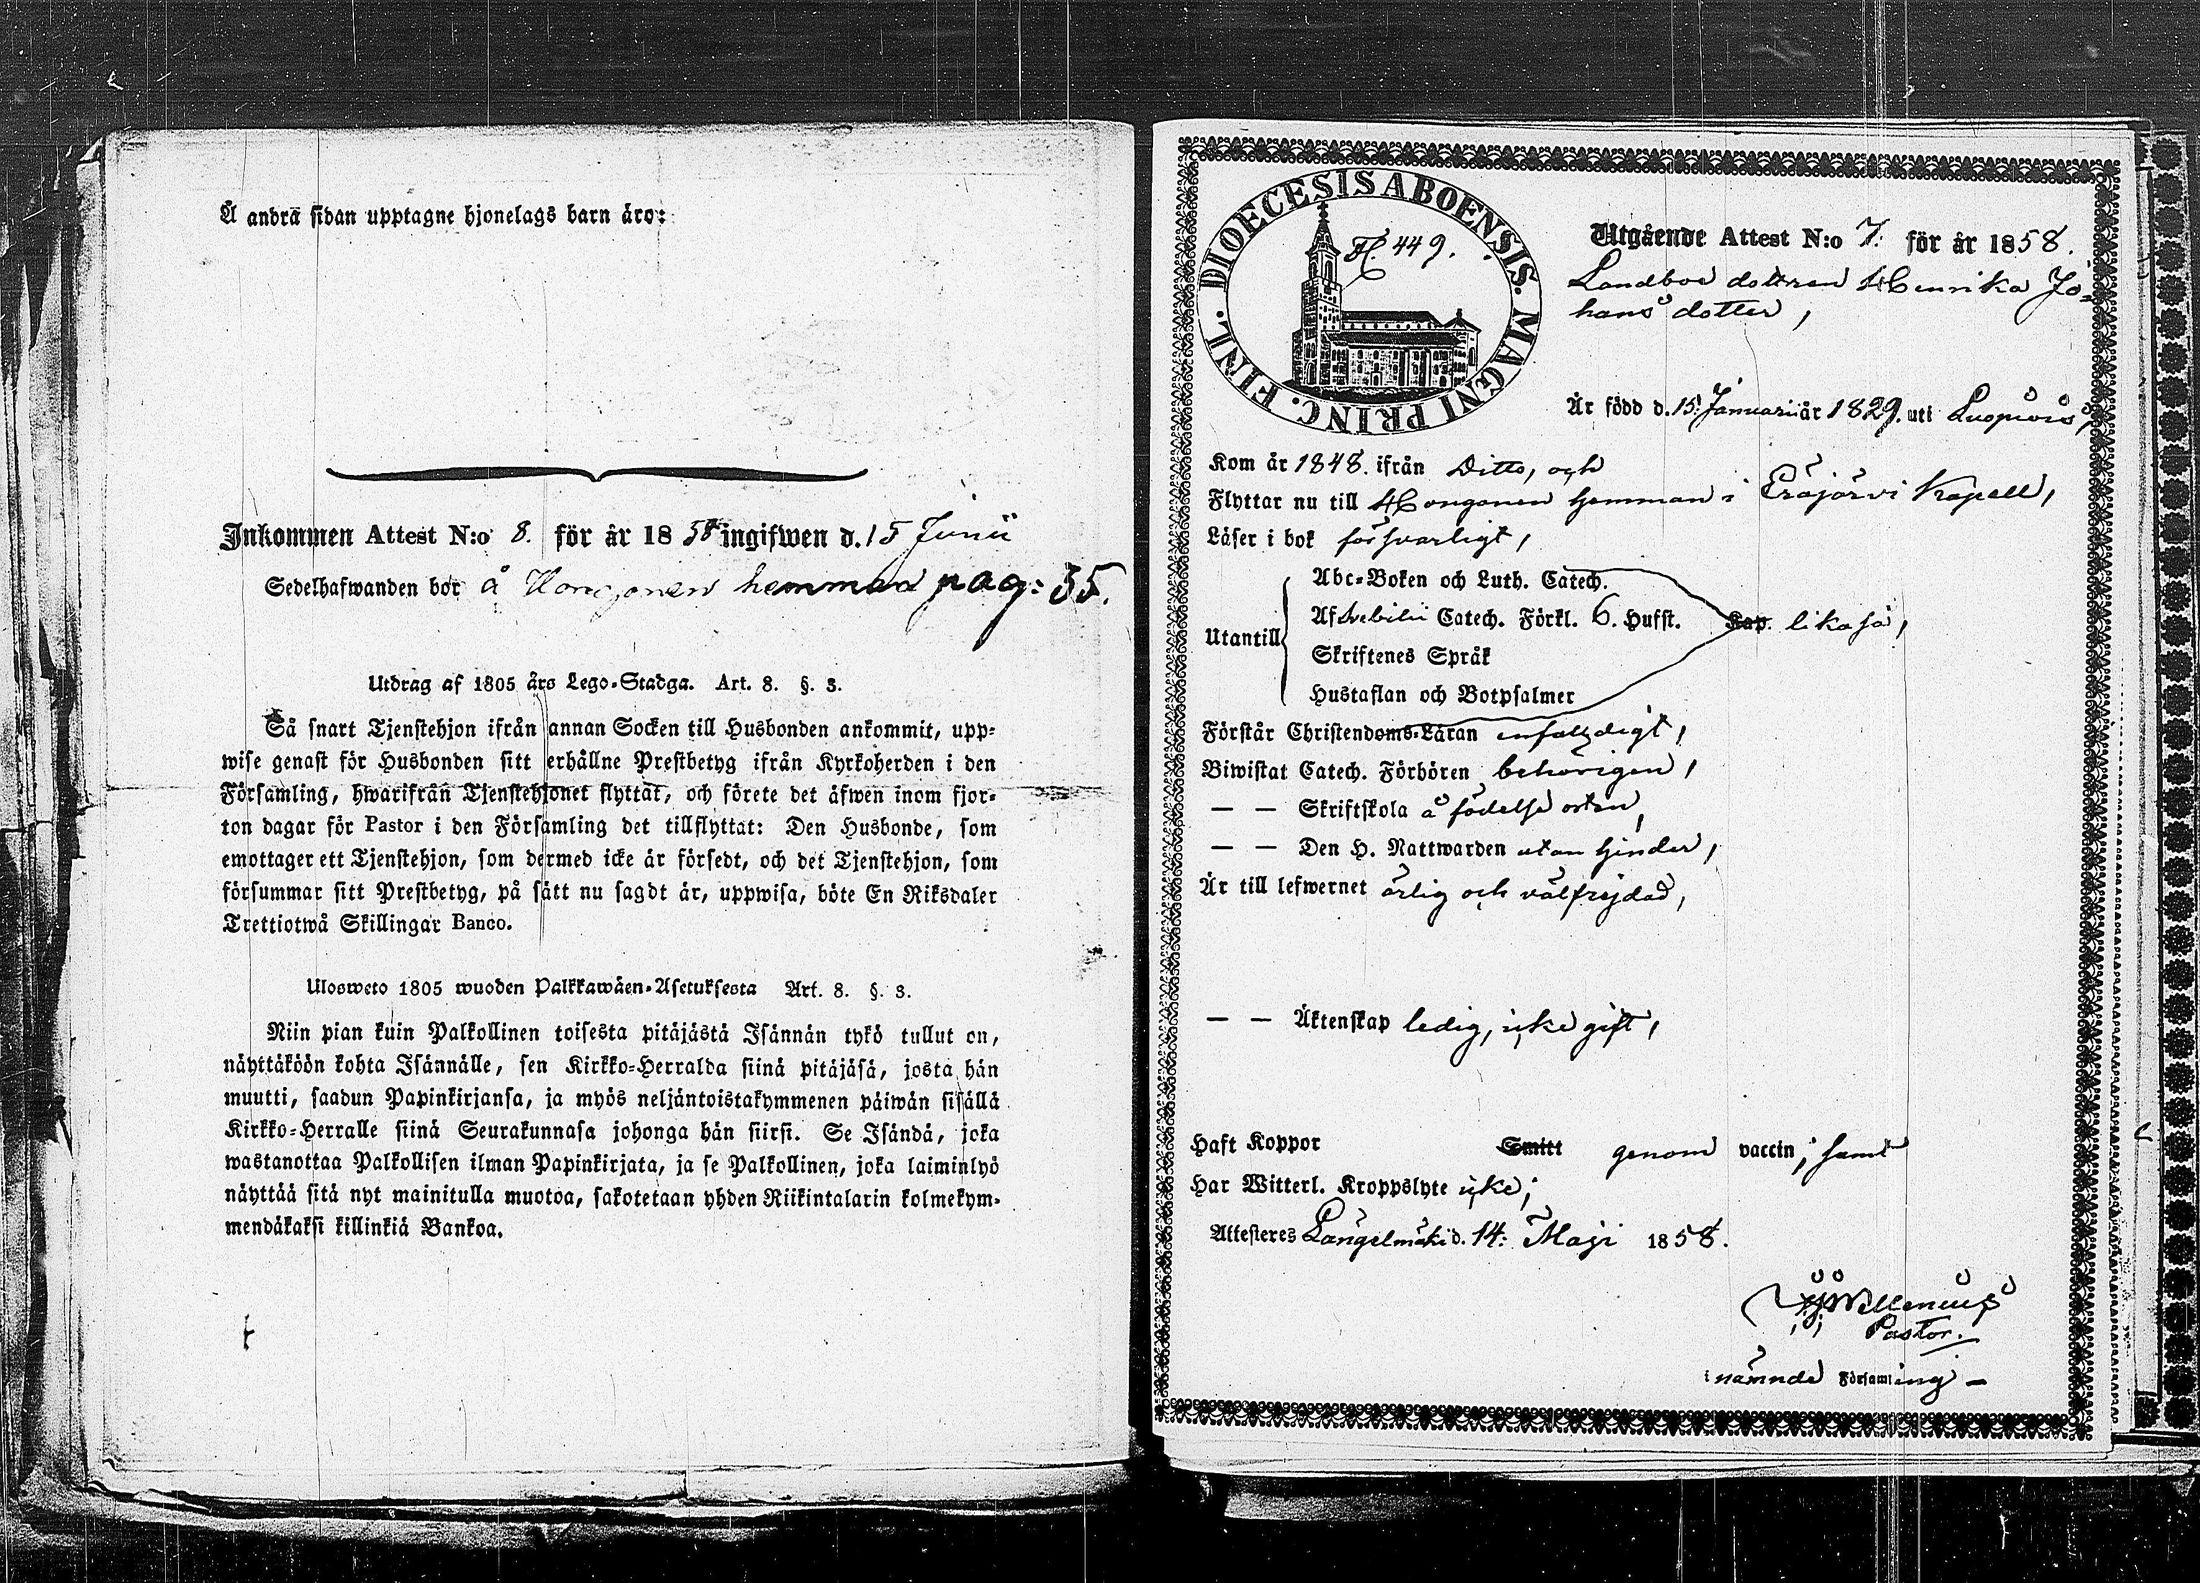 Å andra sidan upptagne hjonelags barn äro:
Inkommen Attest N:o 8. för år 1858 ingifwen d. 15 Junii
Sedelhafwanden bor å Hongonen hemman pag: 35.
Utdrag af 1805 års Lego-Stadga. Art. 8. §. 3.
Så snart Tjenstehjon ifrån annan Socken till Husbonden ankommit, upp-
wise genast för Husbonden sitt erhållne Prestbetyg ifrån Kyrkoherden i den
Församling, hwarifrån Tjenstehjonet flyttat, och förete det äfwen inom fjor-
ton dagar för Pastor i den Församling det tillflyttat: Den Husbonde, som
emottager ett Tjenstehjon, som dermed icke är försedt, och det Tjenstehjon, som
försummar sitt Prestbetyg, på sätt nu sagdt är, uppwisa, böte En Riksdaler
Trettiotwå Skillingar Banco.
Ulosweto 1805 wuoden Palkkawäen-Asetuksesta Art. 8. §. 3.
Niin pian kuin Palkollinen toisesta pitäjästä Isännän tykö tullut on,
näyttäköön kohta Isännälle, sen Kirkko-Herralda siinä pitäjäsä, josta hän
muutti, saadun Papinkirjansa, ja myös neljäntoistakymmenen päiwän sisällä
Kirkko-Herralle siinä Seurakunnasa johonga hän siirsi. Se Isändä, joka
wastanottaa Palkollisen ilman Papinkirjata, ja se Palkollinen, joka laiminlyö
näyttää sitä nyt mainitulla muotoa, sakotetaan yhden Riikintalarin kolmekym-
mendäkaksi killinkiä Bankoa.
DIOECESIS ABOENSIS. MAGNI PRINC. FINL.
449.
Utgående Attest N:o 7. för år 1858.
Landboe dottren Henrika Jo-
hans dotter,
Är född d. 15: Januarii år 1829. uti Luopiois,
Kom år 1848. ifrån Ditto, och
Flyttar nu till Hongonen hemman i Eräjärvi Kapell,
Läser i bok försvarligt,
Utantill
Abc-Boken och Luth. Catech.
Af Svebilii Catech. Förkl. 6. Hufst. Kap. likaså,
Skriftenes Språk
Hustaflan och Botpsalmer
Förstår Christendoms-Läran enfaldigt,
Biwistat Catech. Förhören behörigen,
— — Skriftskola å födelse orten,
— — Den H. Nattwarden utan hinder,
Är till lefwernet ärlig och välfrejdad,
— — Äktenskap ledig, icke gift,
Haft Koppor Smitt genom vaccin; samt
Har Witterl. Kroppslyte icke;
Attesteres Längelmäki d. 14: Maji 1858.
Pastor.
i nämnde Församling —